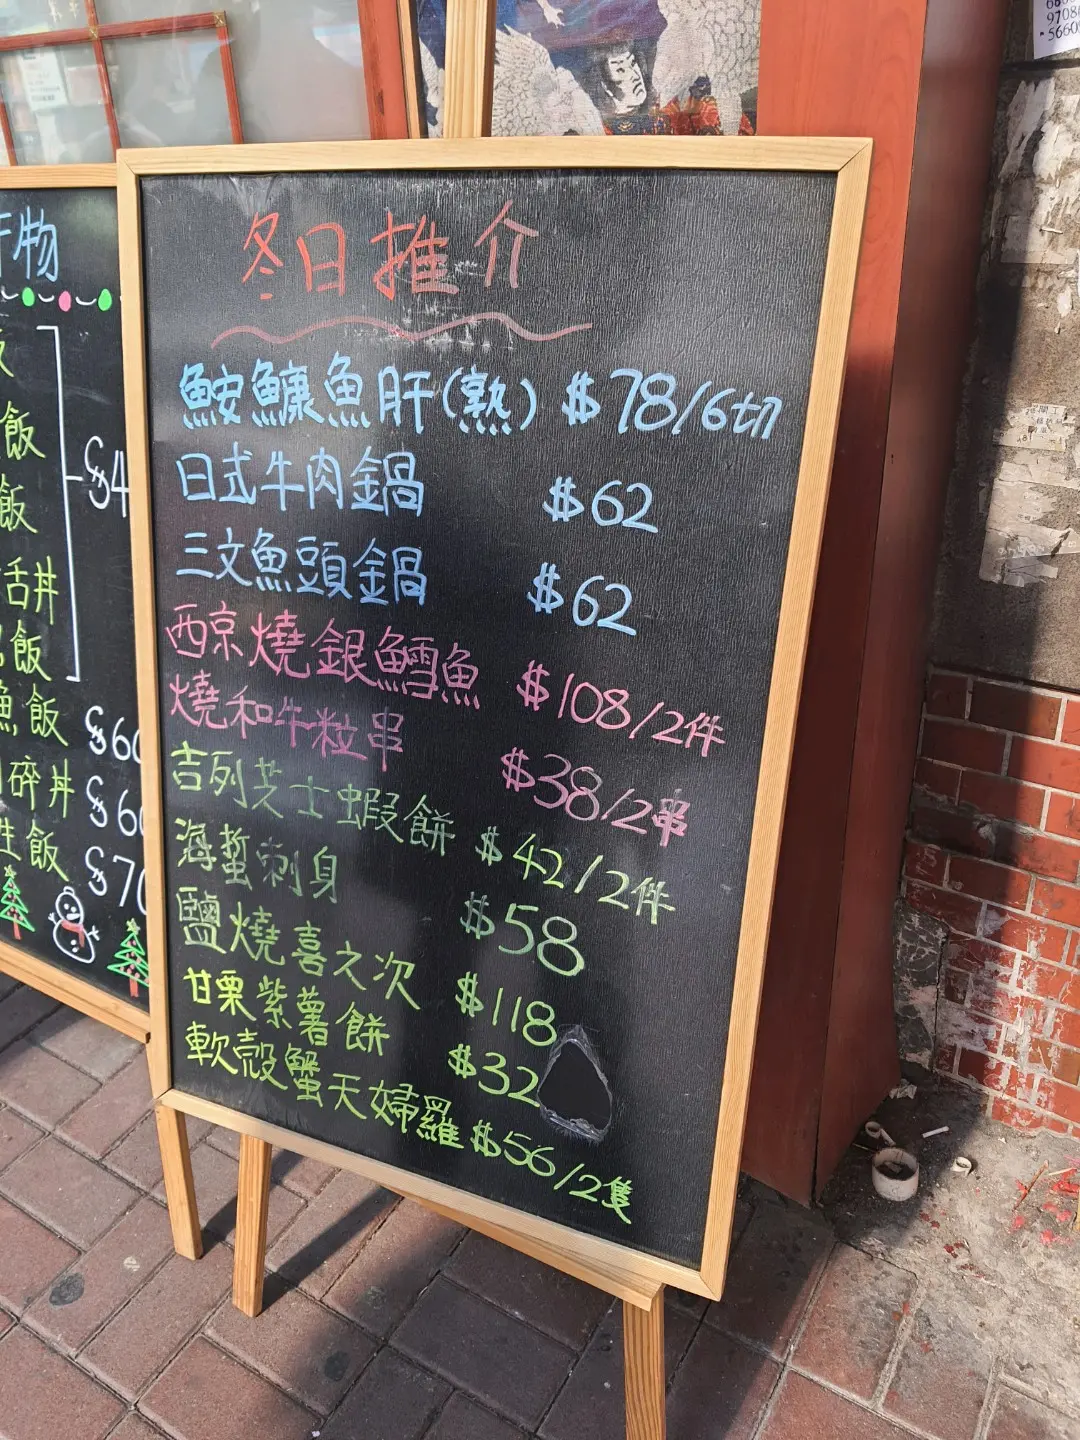 冬日推介
鮟鱇魚肝(熟) $78/6切
日式牛肉鍋 $62
三文魚頭鍋 $62
西京燒銀鱈魚 $108/2件
燒和牛粒串 $38/2串
吉列芝士蝦餅 $42/2件
海蜇刺身 $58
鹽燒喜之次 $118
甘栗紫薯餅 $32
軟殼蟹天婦羅 $56/2隻
物
飯
飯
丼
飯
$4
魚飯 $60
碎丼 $60
飯 $70